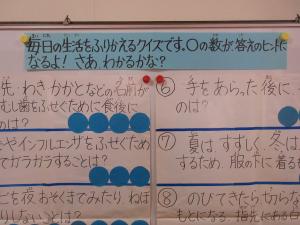 毎日の生活をふりかえるクイズです。〇の数が、答えのヒントに
なるよ！さあ、わかるかな？
先、わき、かかとなどの名前が
むし歯をふせぐために食後に
のは？
やインフルエンザをふせぐため
てガラガラすることは？
ごを夜おそくまでみたり、ねぼ
りしない」とは？
⑥ 手をあらった後に、
のは？
⑦ 夏はすずしく、冬は
するため、服の下に着る
⑧ のびてきたら切らな
もとになる、指先にある